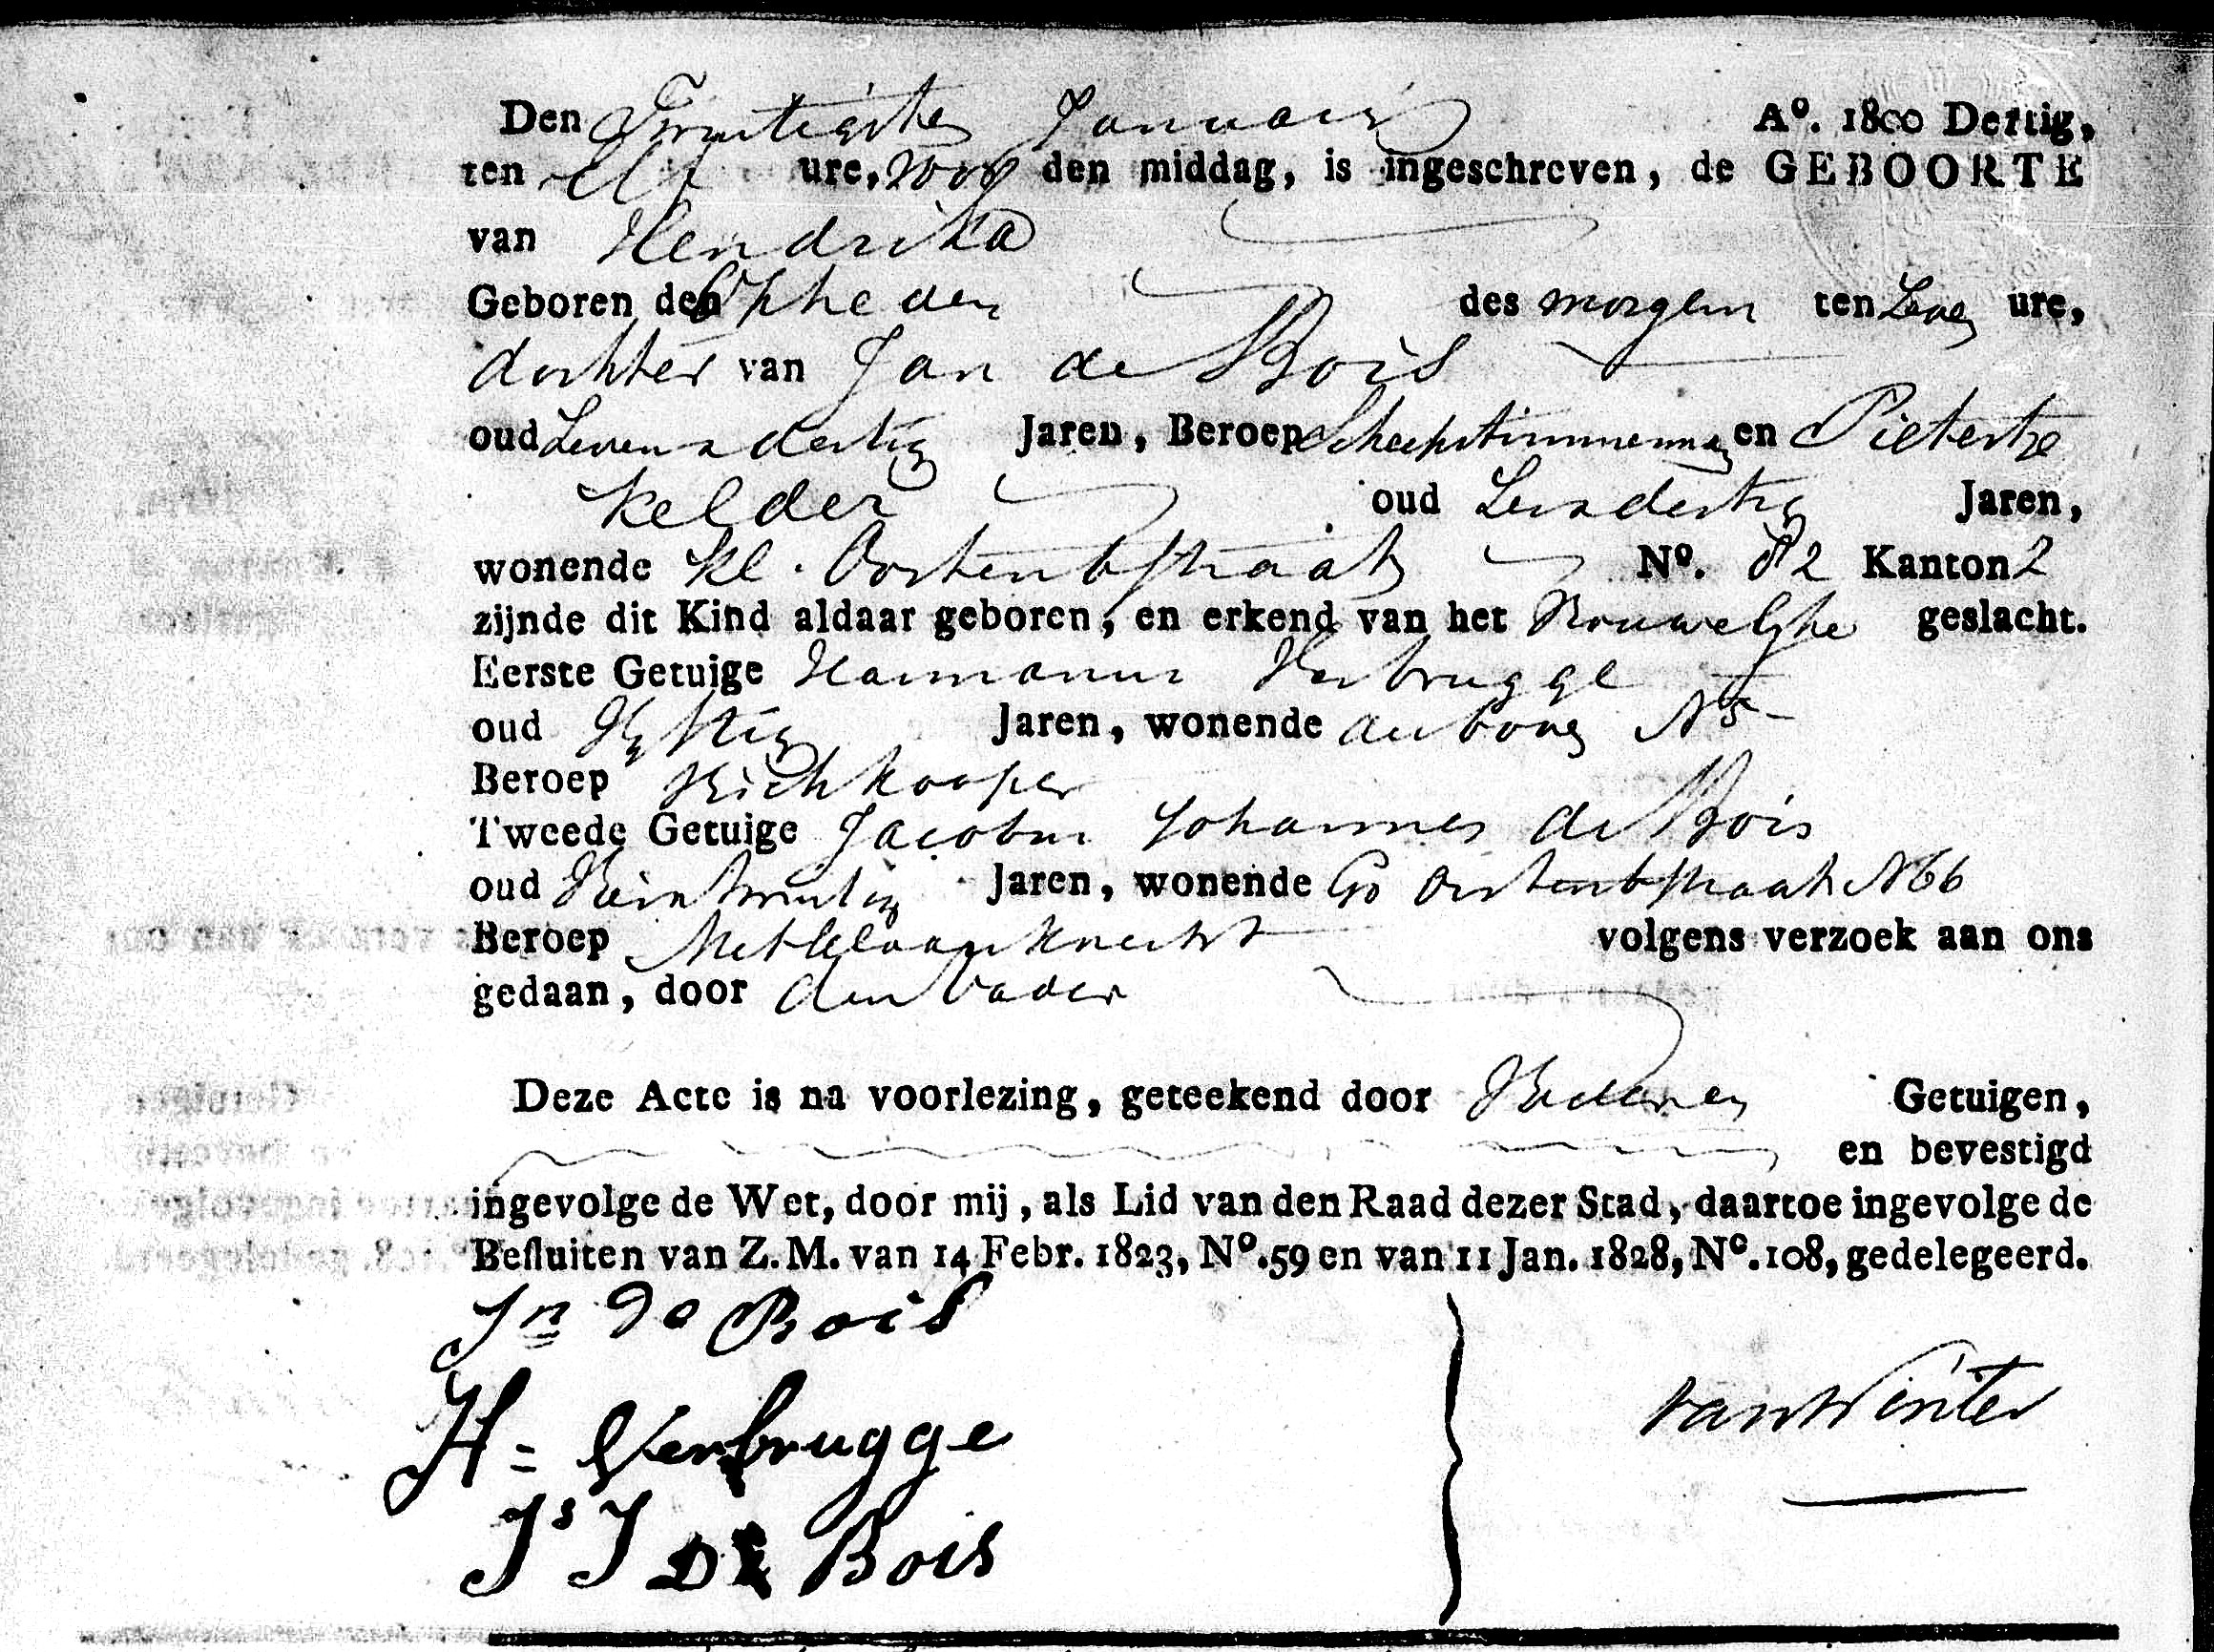 Den Twintigsten Januarij A°. 1800 Dertig,
ten elf ure, voor den middag, is ingeschreven, de GEBOORTE
van Hendrika
Geboren den Op heden des morgens ten ure,
dochter van Jan de Bois
oud Zevenendertig Jaren, Beroep Scheepstimmerman en Pietertje
Kelder oud Jaren,
wonende Kl. Oostenbstraat N°. 82 Kanton 2
zijnde dit Kind aldaar geboren, en erkend van het Vrouwelijke geslacht.
Eerste Getuige Harmanus Verbrugge
oud Vijftig Jaren, wonende als boven N5
Beroep Vischkooper
Tweede Getuige Jacobus Johannes de Bois
oud Jaren, wonende Gr Oostenbstraat N66
Beroep Metselaarsknecht volgens verzoek aan ons
gedaan, door den Vader
Deze Acte is na voorlezing, geteekend door Vader en Getuigen,
en bevestigd
ingevolge de Wet, door mij, als Lid van den Raad dezer Stad, daartoe ingevolge de
Besluiten van Z. M. van 14 Febr. 1823, N°. 59 en van 11 Jan. 1828, N°. 108, gedelegeerd.
Jn de Bois
H= Verbrugge
van Winter
Js J De Bois